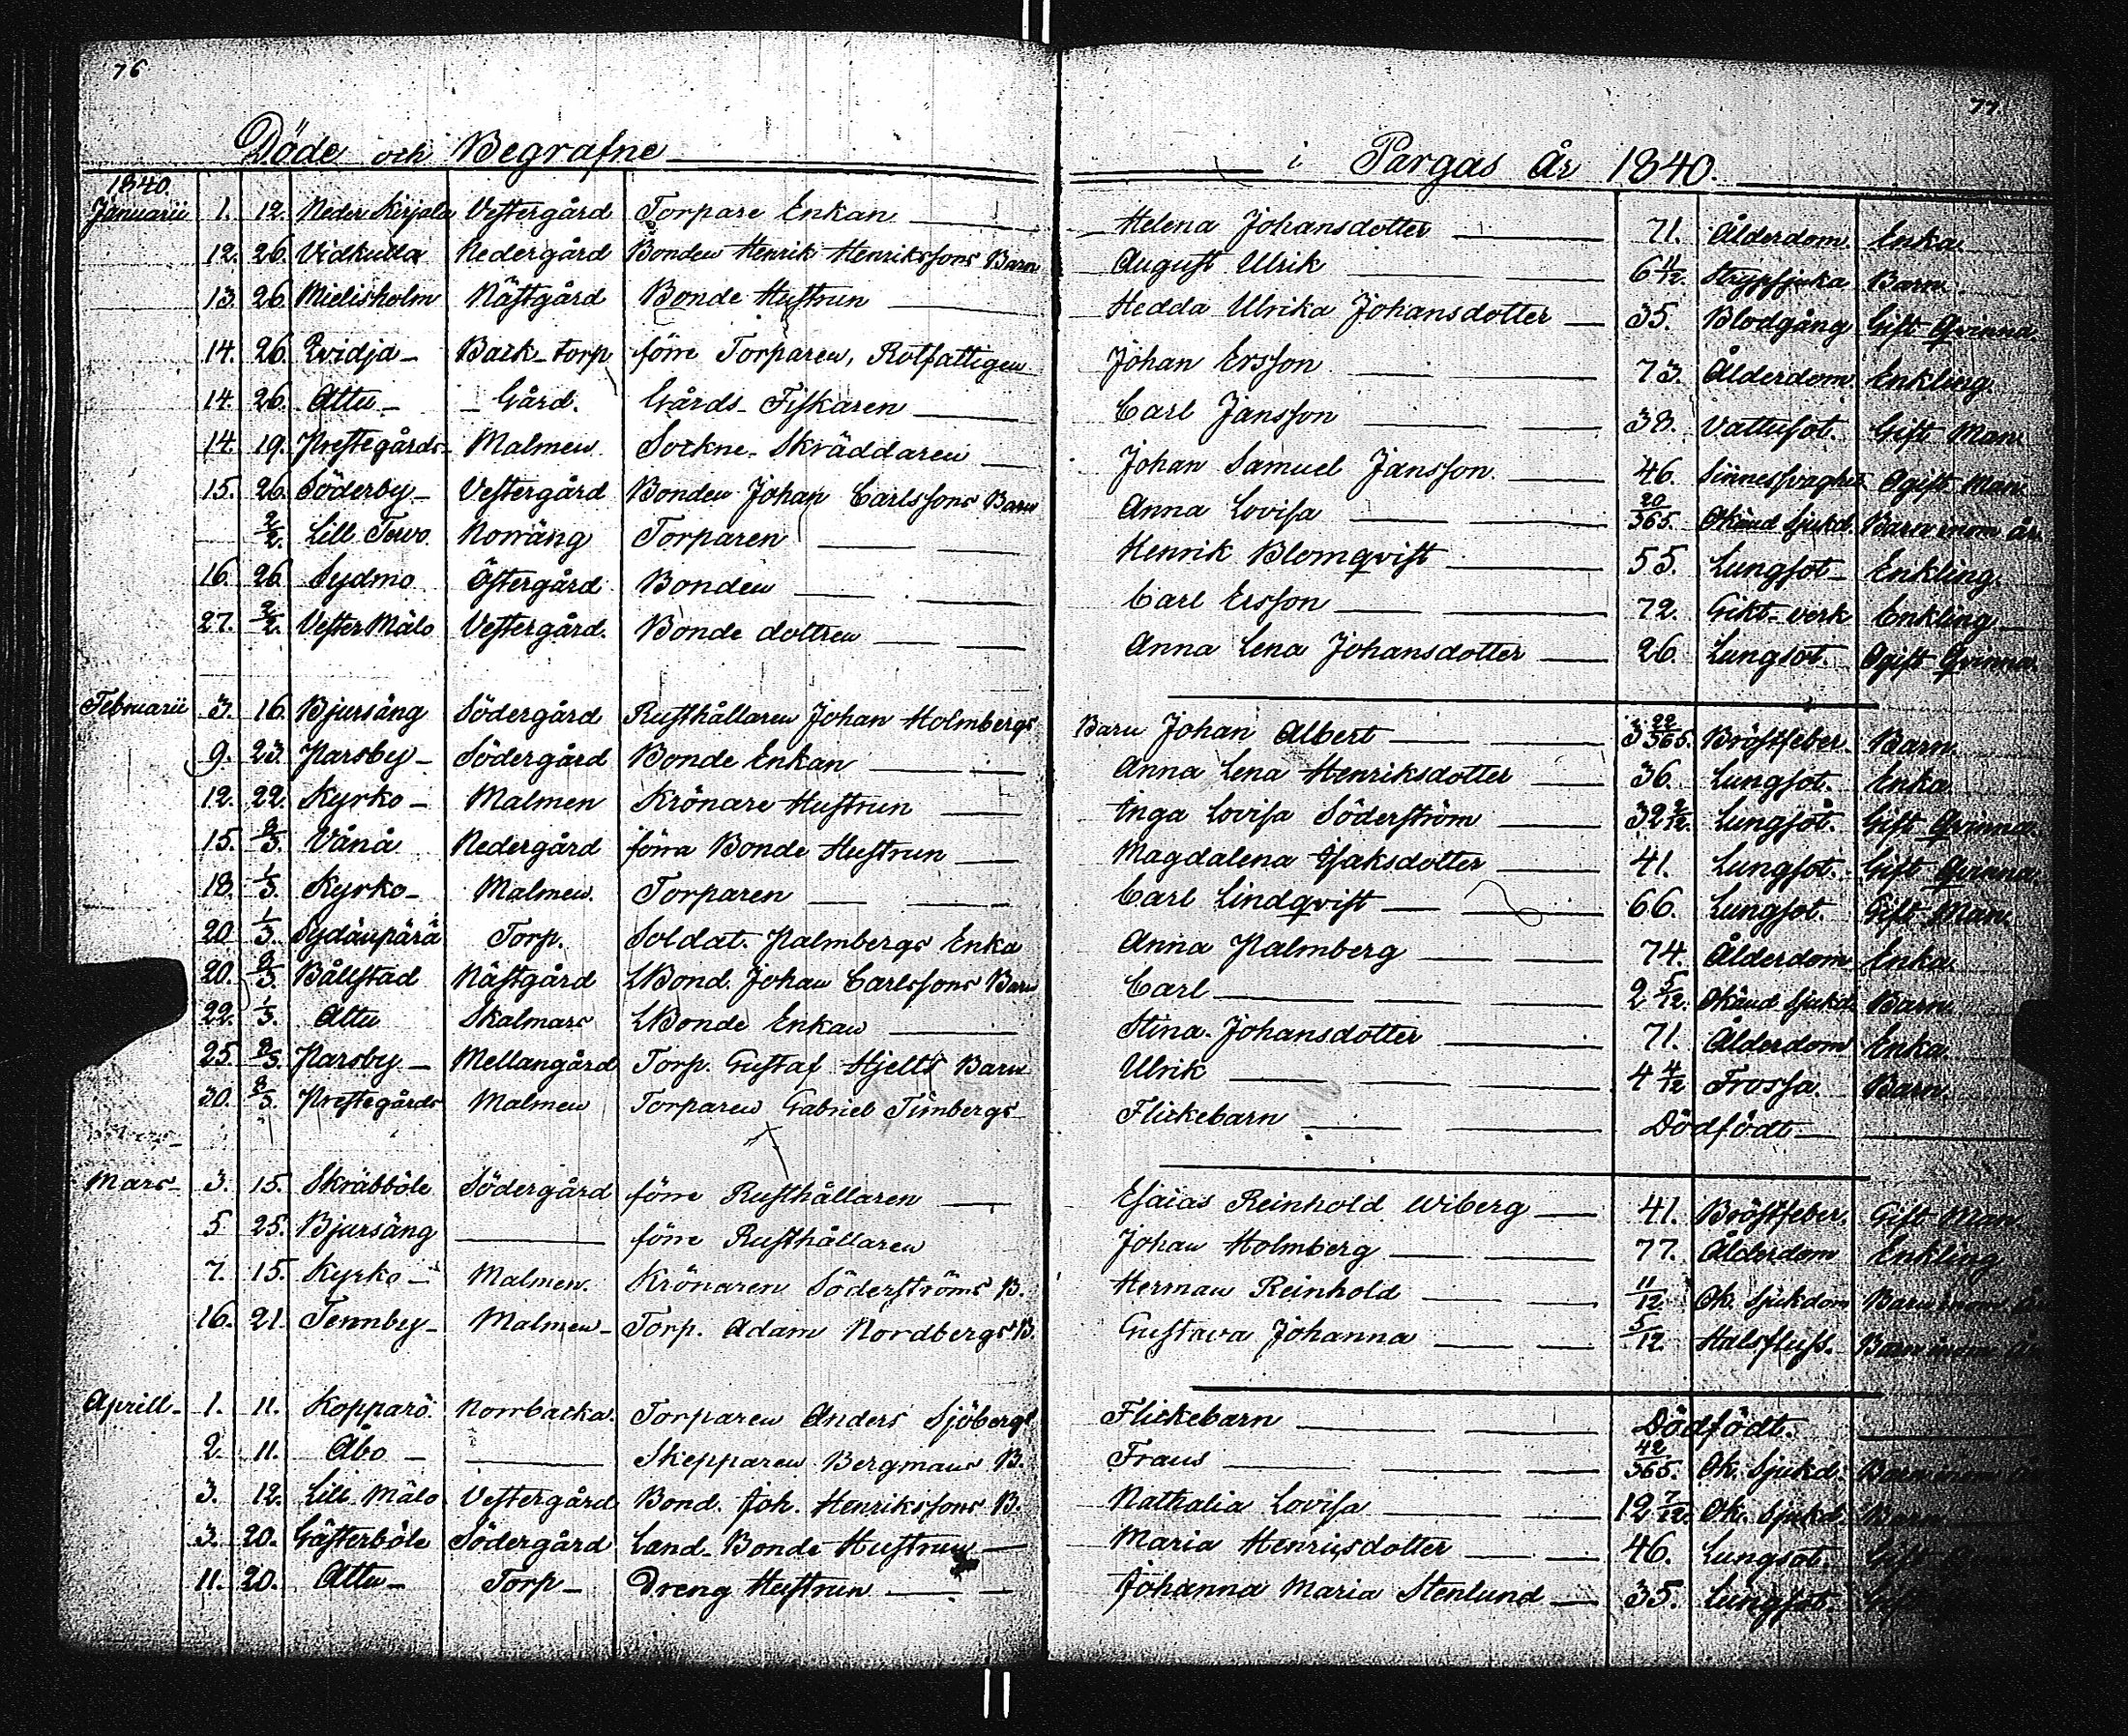 76
77
Döde och Begrafne
i Pargas år 1840.
1840.
Januarii 1. 12. Neder Kirjala Vestergård Torpare Enkan Helena Johansdotter 71. Ålderdom. Enka.
12. 26. Vidkulla Nedergård Bonden Henrik Henrikssons Barn August Ulrik 6 11/12. Strypsjuka Barn.
13. 26. Mielisholm Nästgård Bonde Hustrun Hedda Ulrika Johansdotter 35. Blodgång Gift Qvinna.
14. 26. Qvidja Back-torp förre Torparen, Rotfattigen Johan Ersson 73. Ålderdom. Enkling.
14. 26. Attu Gård. Gårds-Fiskaren Carl Jansson 38. Vattusot. Gift Man.
14. 19. Prestegårds- Malmen Sockne-Skräddaren Johan Samuel Jansson. 46. Sinnessvaghet Ogift Man.
15. 26. Söderby Vestergård Bonden Johan Carlssons Barn Anna Lovisa 20/365. Okänd sjukd. Barn inom år.
2/2. Lill Tervo. Norräng Torparen Henrik Blomqvist 55. Lungsot Enkling.
16. 26 Sydmo Östergård Bonden Carl Ersson 72. Gikt-verk Enkling
27. 2/2. Vester Mälo Vestergård. Bonde dottren Anna Lena Johansdotter 26. Lungsot. Ogift Qvinna.
Februarii 3. 16. Bjursäng Södergård Rusthållaren Johan Holmbergs Barn Johan Albert 3 22/365. Bröstfeber Barn.
9. 23. Parsby Södergård Bonde Enkan Anna Lena Henriksdotter 36. Lungsot. Enka.
12. 22. Kyrko- Malmen Krönare Hustrun Inga Lovisa Söderström 32 2/12. Lungsot. Gift Qvinna.
15. 8/3. Vånå Nedergård förra Bonde Hustrun Magdalena Isaksdotter 41. Lungsot. Gift Qvinna.
18. 1/3. Kyrko- Malmen. Torparen Carl Lindqvist 66. Lungsot. Gift Man.
20 1/3. Sydänpärä Torp. Soldat. Palmbergs Enka Anna Palmberg 74. Ålderdom Enka.
20. 8/3. Bållstad Nästgård LBond. Johan Carlssons Barn Carl 2 5/12. Okänd sjukd. Barn.
22. 1/3. Attu Skalmars LBonde Enkan Stina Johansdotter 71. Ålderdom Enka.
25. 8/3. Parsby Mellangård Torp. Gustaf Hjelts Barn Ulrik 4 4/12 Frossa. Barn.
20. 8/3. Prestegårds Malmen Torparen Gabriel Timbergs Flickebarn Dödfödt
Mars 3. 15. Skräbböle Södergård förre Rusthållaren Esaias Reinhold Wiberg 41. Bröstfeber. Gift Man.
5 25. Bjursäng förre Rusthållaren Johan Holmberg 77. Ålderdom Enkling
7. 15. Kyrko- Malmen. Krönaren Söderströms B. Herman Reinhold 11/12. Ok. Sjukdom Barn inom år
16. 21. Tennby- Malmen Torp. Adam Nordbergs B. Gustava Johanna 5/12. Halsfluss. Barn inom år
Aprill 1. 11. Kopparö. Norrbacka. Torparen Anders Sjöbergs Flickebarn Dödfödt.
2. 11. Åbo Skepparen Bergmans B. Frans 42/365. Ok. Sjukd. Barn inom år
3. 12. Lill Mälo Vestergård Bond. Joh. Henrikssons B. Nathalia Lovisa 12 7/12. Ok. Sjukd. Barn.
3. 20. Gästerböle Södergård Land-Bonde Hustrun Maria Henriksdotter 46. Lungsot. Gift
11. 20. Attu Torp Dreng Hustrun Johanna Maria Stenlund 35. Lungsot.